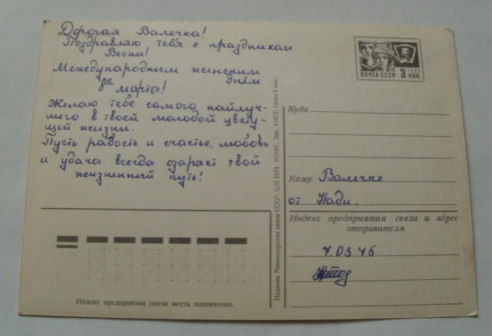 Дорогая Валечка!
Поздравляю тебя с праздником
Весны!
Международным женским
днём
8е марта!
Желаю тебе самого наилуч-
шего в твоей молодой цвету-
щей жизни.
Пусть радость и счастье, любовь
и удача всегда озаряет твой
жизненный путь!
ПОЧТА СССР
3 коп.
Куда
Кому Валечке
от Нади.
Индекс предприятия связи и адрес
отправителя
7.03 75
Издание Министерства связи СССР.
Индекс предприятия связи места назначения.